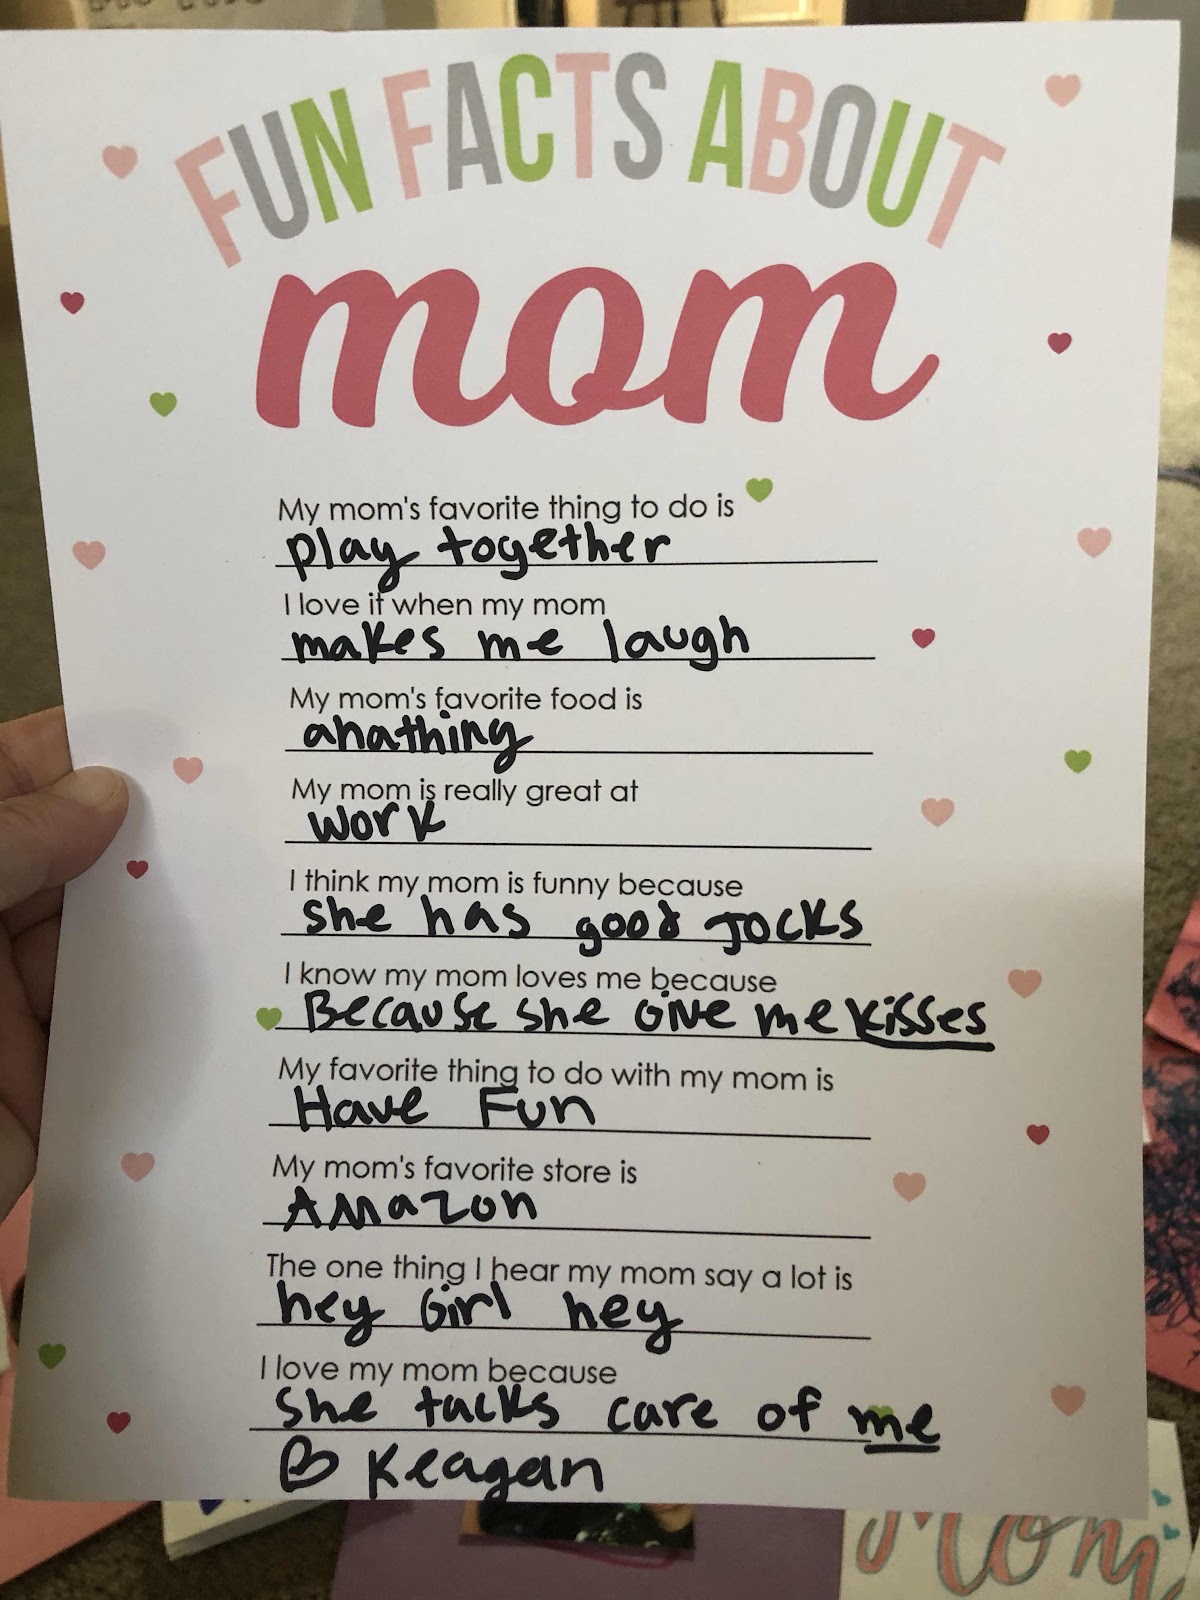 FUN FACTS ABOUT
mom
My mom's favorite thing to do is
play together
I love it when my mom
makes me laugh
My mom's favorite food is
anathing
My mom is really great at
work
I think my mom is funny because
she has good Jocks
I know my mom loves me because
Because she Give me kisses
My favorite thing to do with my mom is
Have Fun
My mom's favorite store is
Amazon
The one thing I hear my mom say a lot is
hey Girl hey
I love my mom because
she tacks care of me
Keagan
Mom